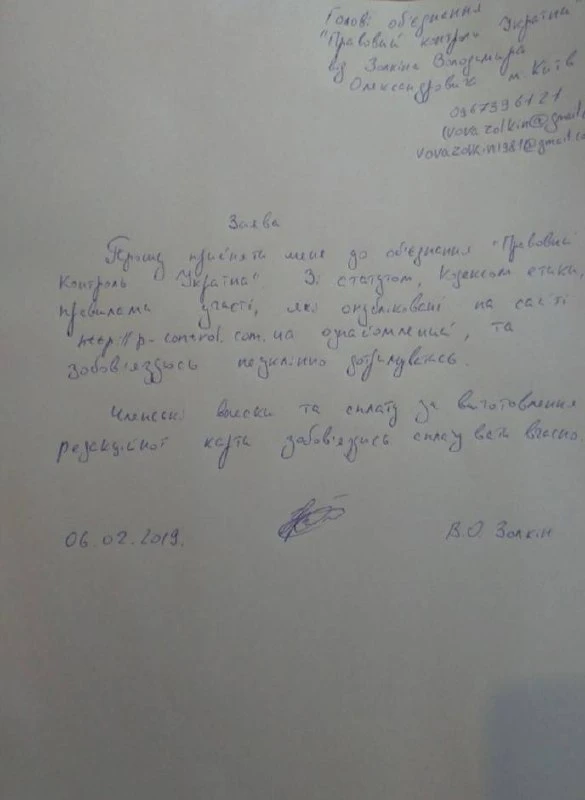 Голові об'єднання
"Правовий контроль Україна"
від Золкіна Володимира
Олександрович м. Київ
0967396121
(vovazolkin@gmail.
vovazolkin1981@gmail.co
Заява
Прошу прийняти мене до об'єднання "Правовий
Контроль Україна" Зі статутом, Кодексом етики,
правилами участі, які опубліковані на сайті
http://p-control.com.ua ознайомлений, та
зобов'язуюсь неухильно дотримуватись.
Членські внески та сплату за виготовлення
редакційної карти зобов'язуюсь сплачувати вчасно.
06.02.2019. В.О. Золкін